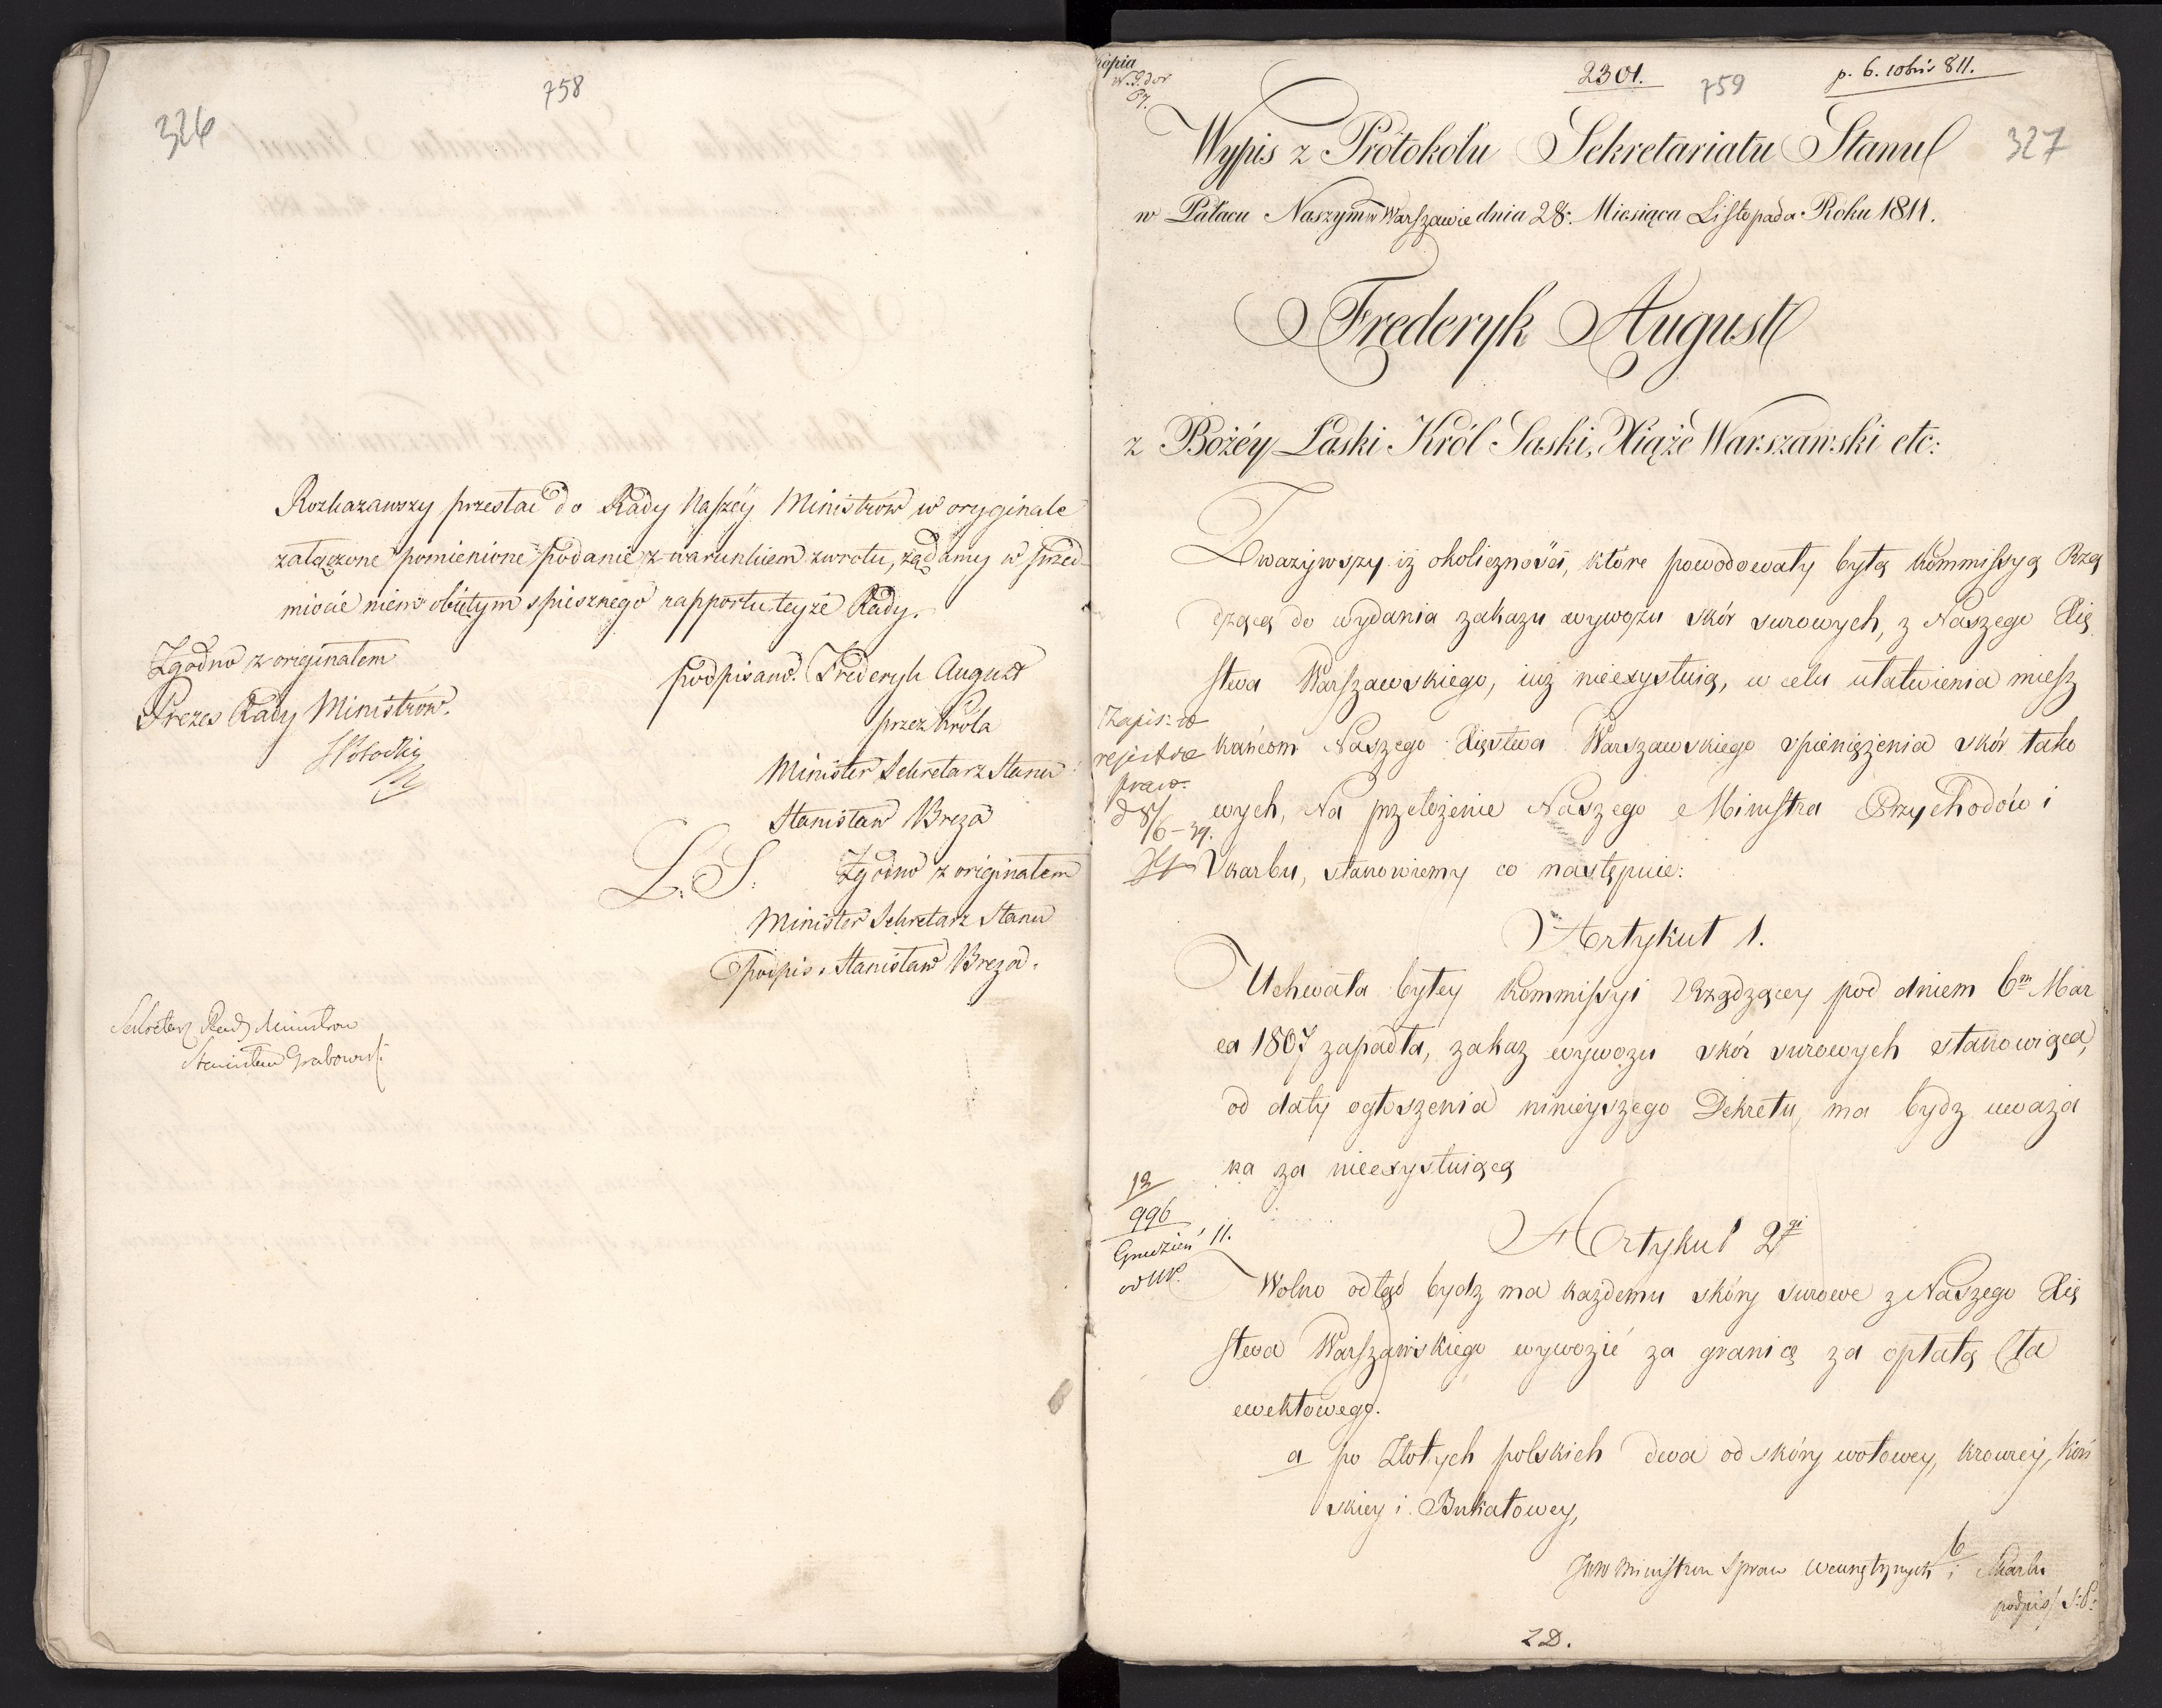 758
326
Rozkazawszy przesłać do Rady Naszéy Ministrów w oryginale
załączone pomienione podanie z warunkiem zwrotu, żądamy w przed-
miocie niem obiętym spiesznego rapportu teyże Rady.
Zgodno z originałem
Prezes Rady Ministrów.
podpisano. Frederyk August
przez Króla
Minister Sekretarz Stanu
Stanisław Breza
L. S.
Zgodno z originałem
Minister Sekretarz Stanu
podpis. Stanisław Breza.
Sekretarz Rady Ministrow
Stanisław Grabowski
kopia
2301.
759
p. 6. 10bris 811.
327
Wypis z Protokołu Sekretariatu Stanu
w Pałacu Naszym w Warszawie dnia 28. Miesiąca Listopada Roku 1811.
Frederyk August
z Bożéy Łaski Król Saski, Xiąże Warszawski etc:
Zważywszy iż okoliczności, które powodowały byłą Kommissyą Rzą
dzącą do wydania zakazu wywozu skór surowych, z Naszego Xię
stwa Warszawskiego, iuż nieexystuią, w celu ułatwienia miesz
kańcom Naszego Xięstwa Warszawskiego spieniężenia skór tako
wych, Na przełożenie Naszego Ministra Przychodów i
Skarbu, stanowiemy co następuie:
Zapis: w
rejestrze
praw.
Artykuł 1.
Uchwała byłey Kommissyi Rządzącey pod dniem 6m Mar
ca 1807 zapadła, zakaz wywozu skór surowych stanowiąca,
od daty ogłoszenia ninieyszego Dekretu, ma bydz uważa
na za nieexystuiącą
13
996
Grudzień 11.
Artykuł 2gi
Wolno odtąd bydz ma każdemu skóry surowe z Naszego Xię
stwa Warszawskiego wywozić za granicę za opłatą Cła
ewektowego.
a po Złotych polskich dwa od skóry wołowey, krowiey, koń
skiey i Bukatowey,
6
JWW Ministrom Spraw Wewnętrznych i Skarbu
podpis
2D.